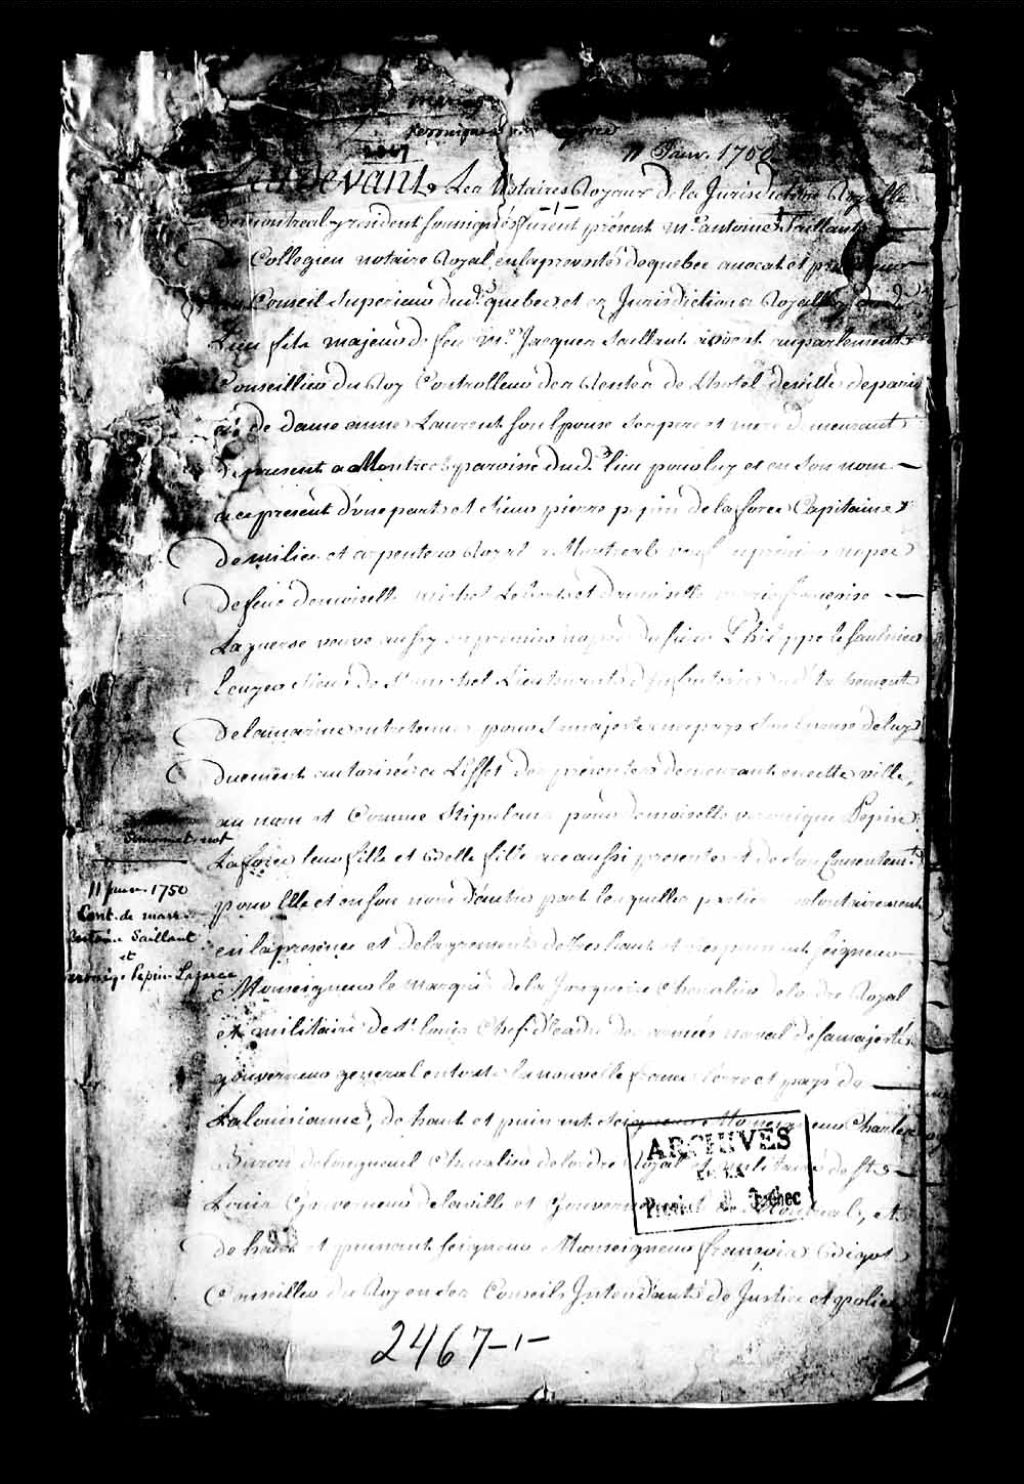 mariage
veronique
11 Janv. 1750
Pardevant Les Notaires Royaux de la Jurisdiction Royalle
de montreal y resident soussignés furent présent Me. antoine Saillant
Collegien notaire Royal en la prevosté de quebec avocat et
Conseil Superieur dud. quebec et en Jurisdictions Royalles
fils majeur de feu Mr. Jacques Saillant vivant en parlement
Conseillier du Roy Controlleur des Rentes de L'hotel de ville de paris
et de dame anne Laurent son Epouse ses pere et mere demeurant
de present a Montreal paroisse dud. lieu pour luy et en son nom
a ce présent d'une part et sieur pierre pepin de la force Capitaine
de milice et arpenteur Royal a Montreal veuf en premier nopces
de feue demoiselle michel Lebert et demoiselle marie françoise
veuve aussy en premier nopces du sieur Philippe le
sieur de St. michel Lieutenant d'infanterie du détachement
de la marine entretenues pour Sa majesté en ce pays son Epouse de luy
duement autorisée a L'effet des présentes demeurant en cette ville,
au nom et Comme Stipulant pour demoiselle veronique Pepin
Laforce leur fille et Elle fille a ce aussi presente et de son Consentemt.
pour Elle et en son nom d'autre part lesquelles parties volontairement
en la presence et de l'agrement de tres haut et tres puissant seigneur
Monseigneur le marquis de la Jonquiere Chevalier de l'ordre Royal
et militaire de St. louis Chef d'Escadre des armées naval de sa majesté
gouverneur general en toute la nouvelle france terre et pays de
La louisianne, de haut et puissant Seigneur Monseigneur Charles
Baron de longueuil Chevalier de l'ordre Royal et militaire de St.
Louis Gouverneur de la ville et Gouvernement de Montreal, et
de haut et puissant seigneur Monseigneur françois Bigot
Conseiller du Roy en ses Conseils Intendant de Justice et police
Simonnet not
11 janv. 1750
Cont. de mari.
Antoine Saillant
et
Veroniq. Pepin Laforce
ARCHIVES
DE LA
Province de Québec
2467-1-